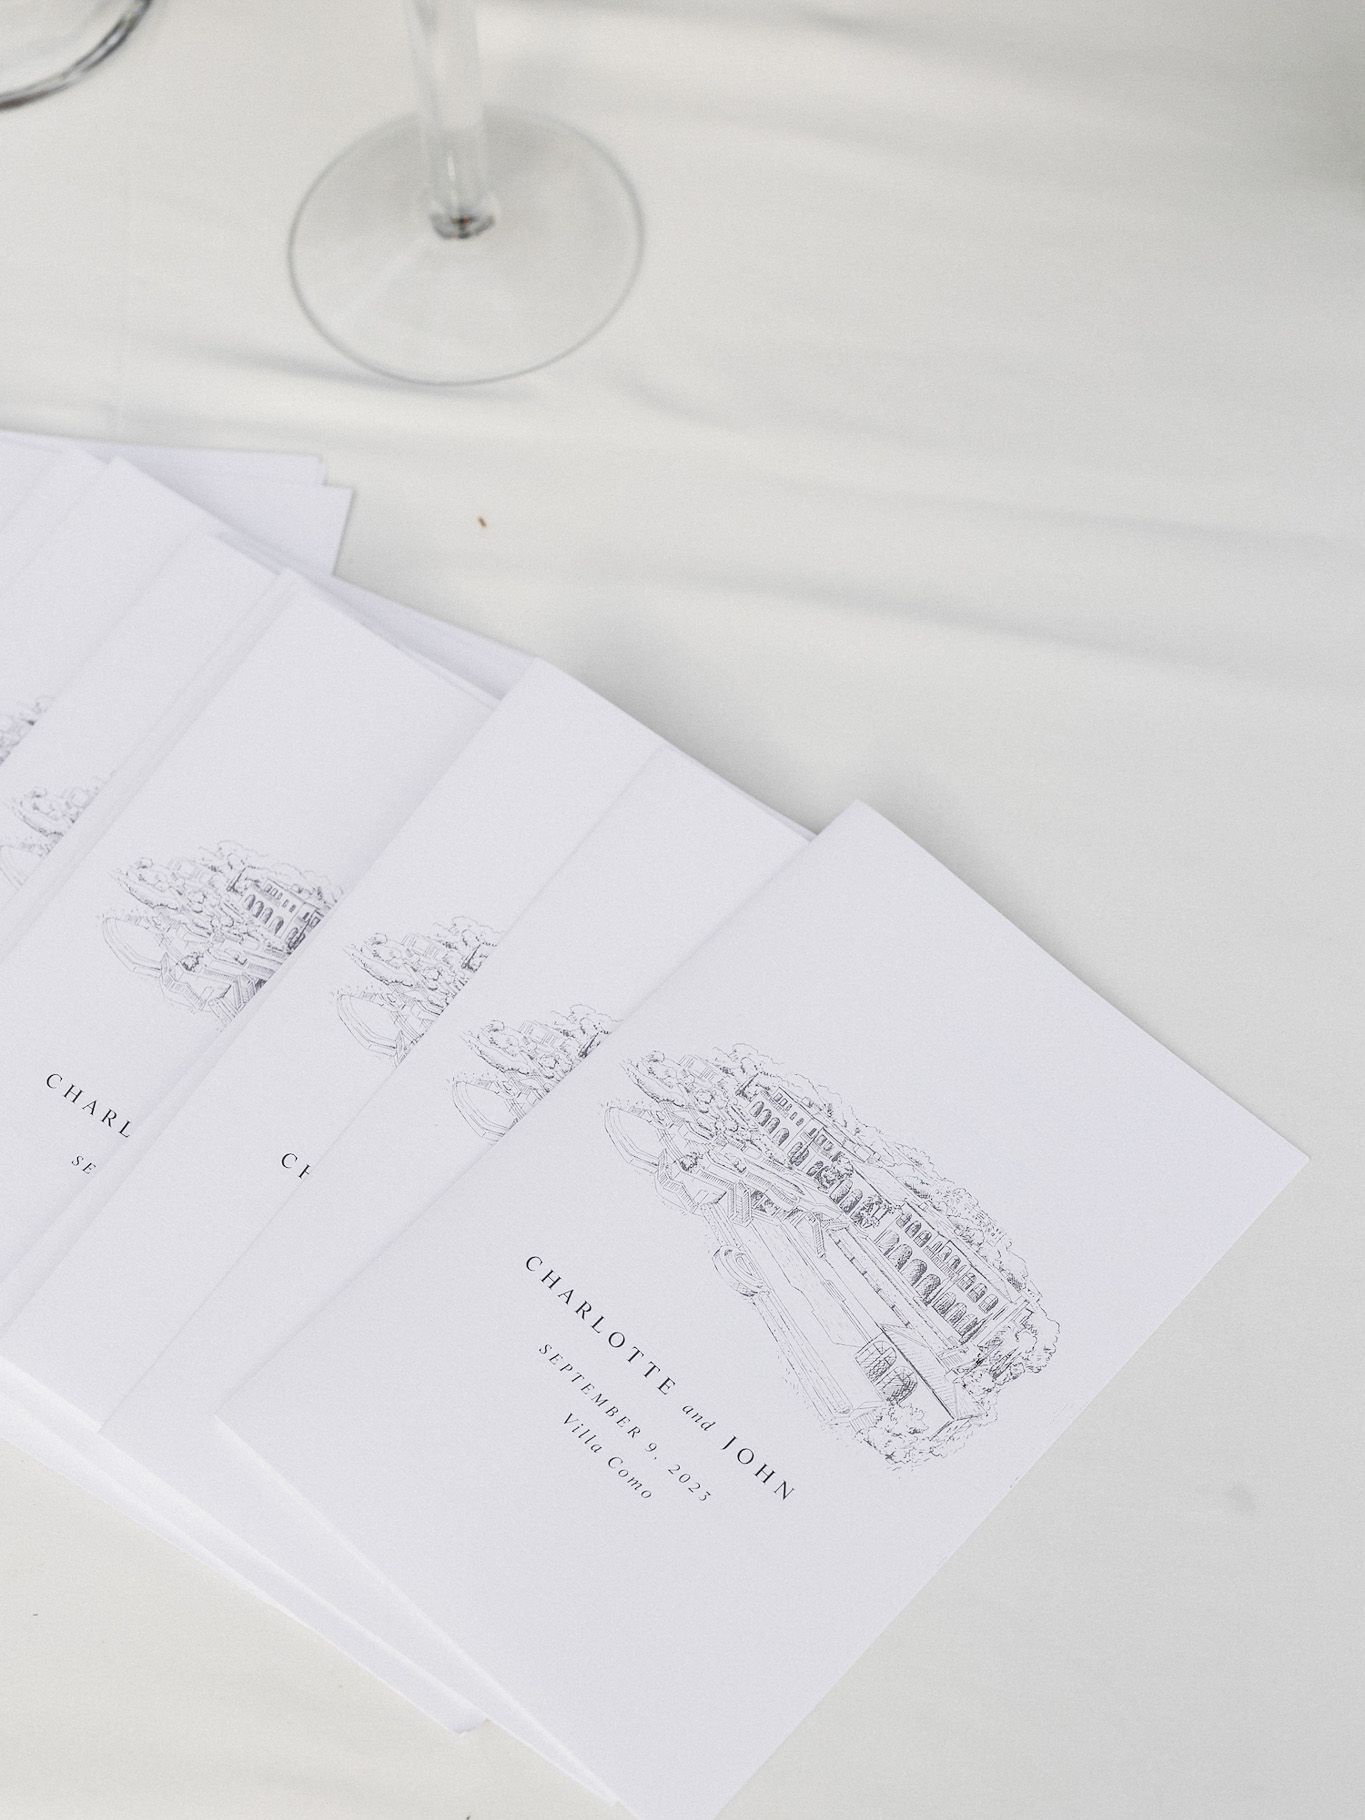 CHARL
SE
CH
CHARLOTTE and JOHN
SEPTEMBER 9, 2023
Villa Como